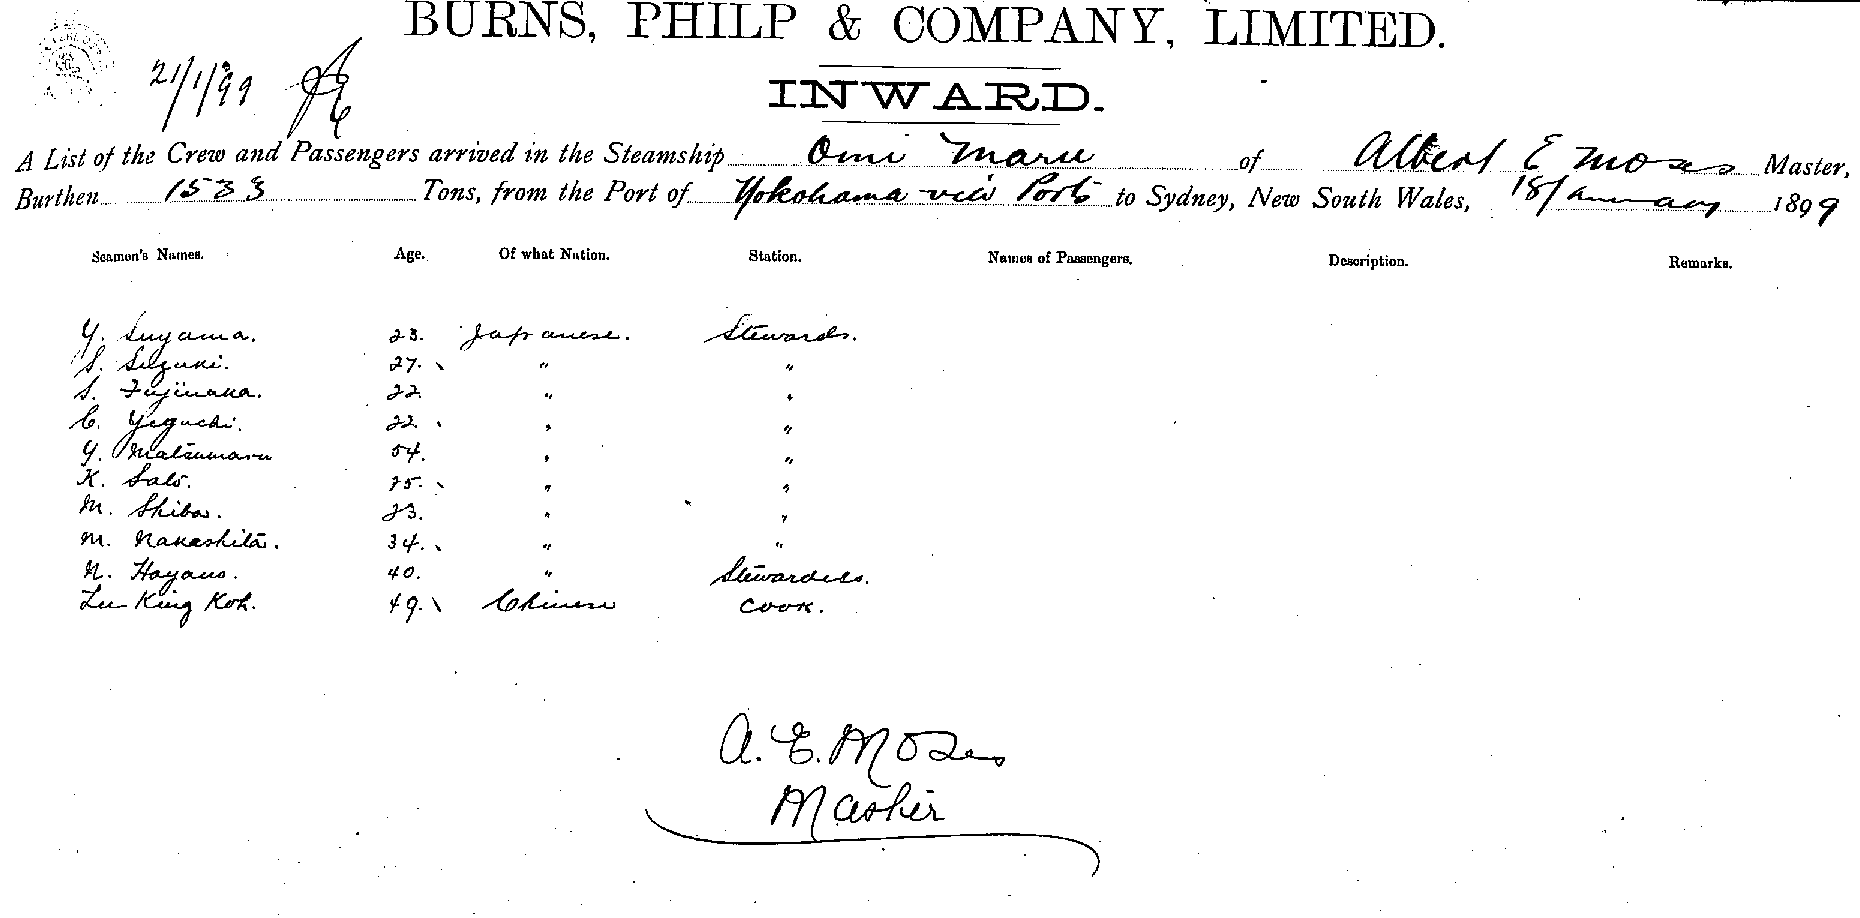 BURNS, PHILP & COMPANY, LIMITED.
21/1/99
INWARD.
A List of the Crew and Passengers arrived in the Steamship Omi Maru of Albert E Moses Master,
Burthen 1533 Tons, from the Port of Yokohama via Ports to Sydney, New South Wales, 18/January 1899
Seamen's Names. Age. Of what Nation. Station. Names of Passengers. Description. Remarks.
Y. Suyama. 23. Japanese. Stewards.
S. Suzuki. 27. " "
S. Fujinaka. 22 " "
C. Yeguchi. 22. " "
Y. Matsumaru 54. " "
K. Sato. 25. " "
M. Shiba. 23. " "
M. Nakashita. 34. " "
N. Hayano. 40. " Stewardess.
Lu King Koh. 49. Chinese Cook.
A. E. Moses
Master